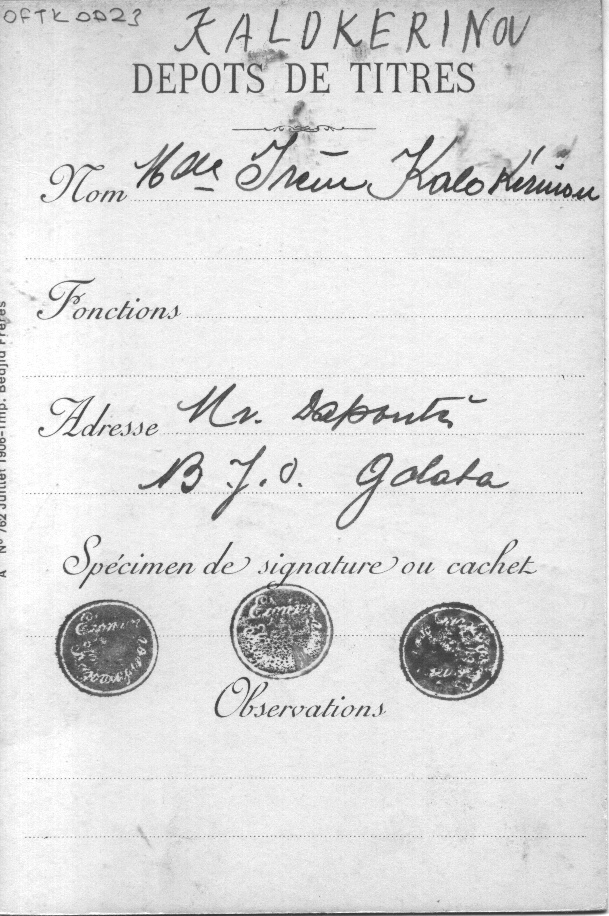 OFTK0023
KALOKERINOU
DEPOTS DE TITRES
Nom Mme Irène Kalokérinou
Fonctions
Adresse Mr. Daponté
B J. O. Galata
Spécimen de signature ou cachet
Observations
A Nº 762 Juillet 1906-Imp. Bedjid Frères